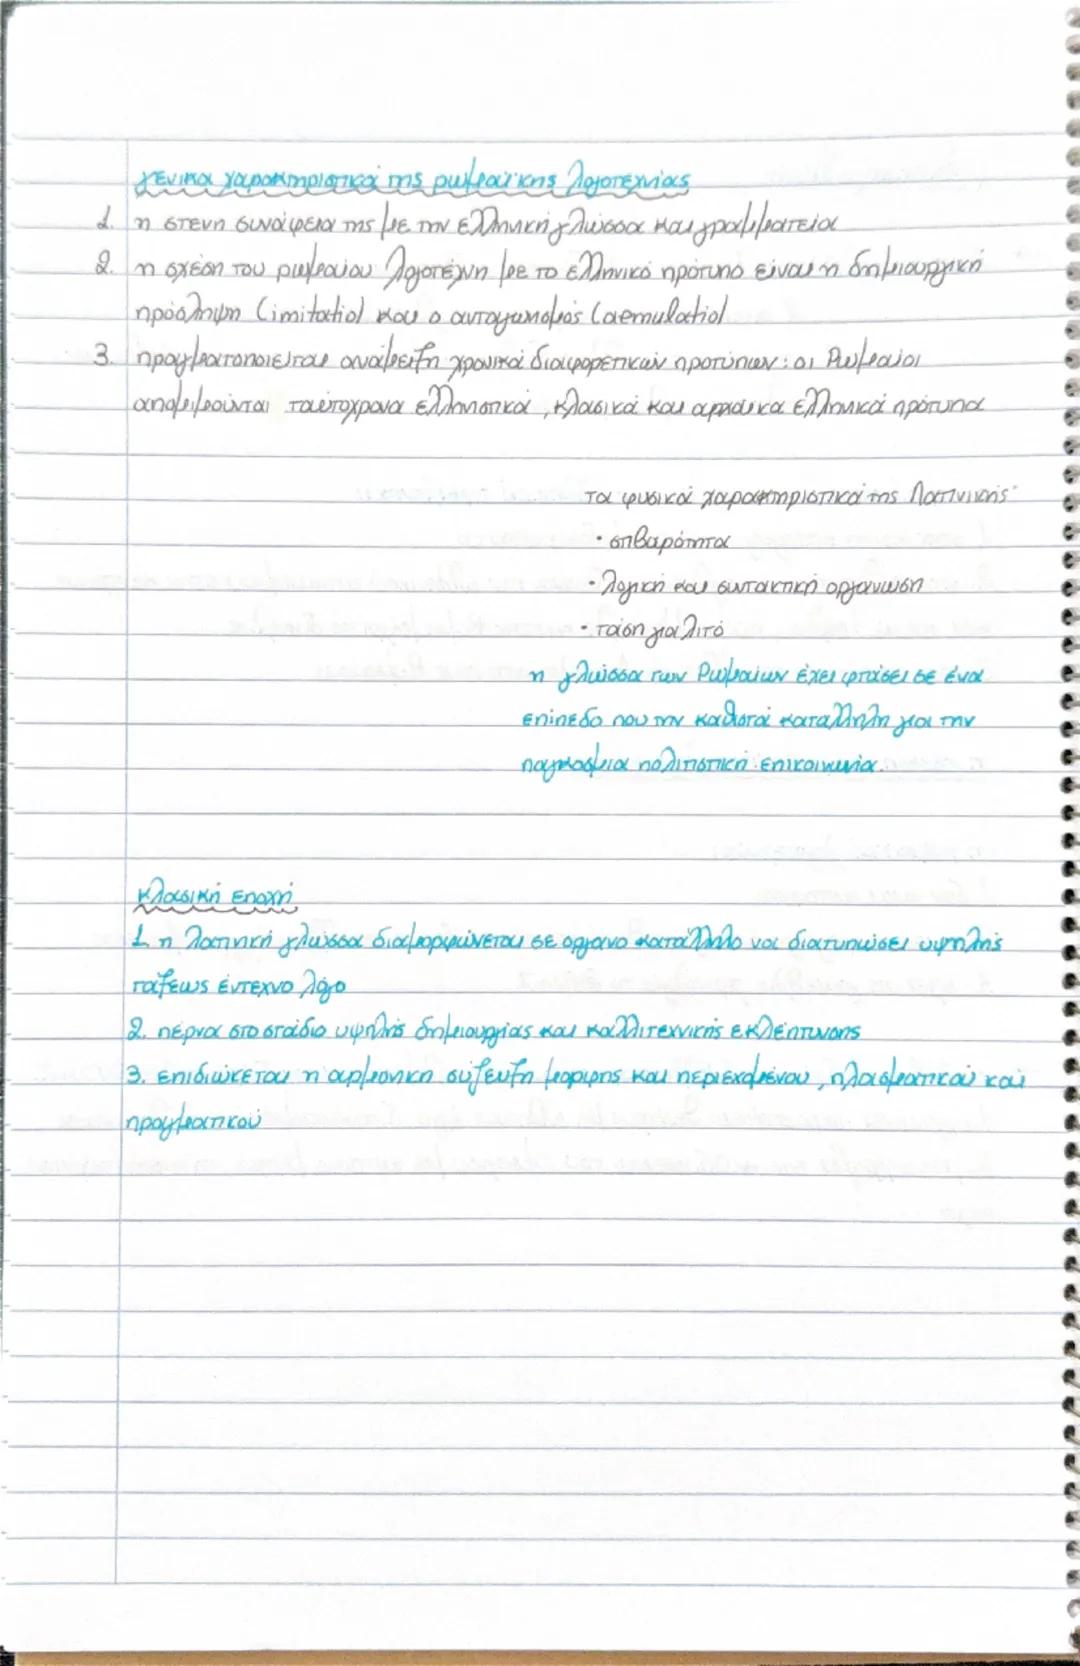 γενικα χαρακτηριστικά της ρωμαϊκης λογοτεχνίας
1. η στενη συνάφεια της με την ελληνική γλώσσα και γραμματεία
2. η σχέση του ρωμαίου λογοτέχνη με το ελληνικό πρότυπο είναι η δημιουργική
πρόσληψη (imitatio) και ο ανταγωνισμός (aemulatio)
3. πραγματοποιείται ανάμειξη χρονικά διαφορετικών προτύπων: οι Ρωμαίοι
απομιμούνται ταυτόχρονα ελληνιστικά, κλασικά και αρχαικα ελληνικά πρότυπα
τα φυσικά χαρακτηριστικά της Λατινικής:
• στιβαρότητα
• λογική και συντακτική οργάνωση
• τάση για λιτό
η γλώσσα των Ρωμαίων έχει φτάσει σε ένα
επίπεδο που την καθιστά κατάλληλη για την
παγκοσμια πολιτιστική επικοινωνία.
κλασική εποχή
1. η λατινική γλώσσα διαμορφώνεται σε όργανο κατάλληλο να διατυπώσει υψηλής
τάξεως έντεχνο λόγο
2. περνα στο στάδιο υψηλής δημιουργίας και καλλιτεχνικής εκλέπτυνσης
3. επιδιώκεται η αρμονικη σύζευξη μορφης και περιεχομένου, πλασματικού και
πραγματικού